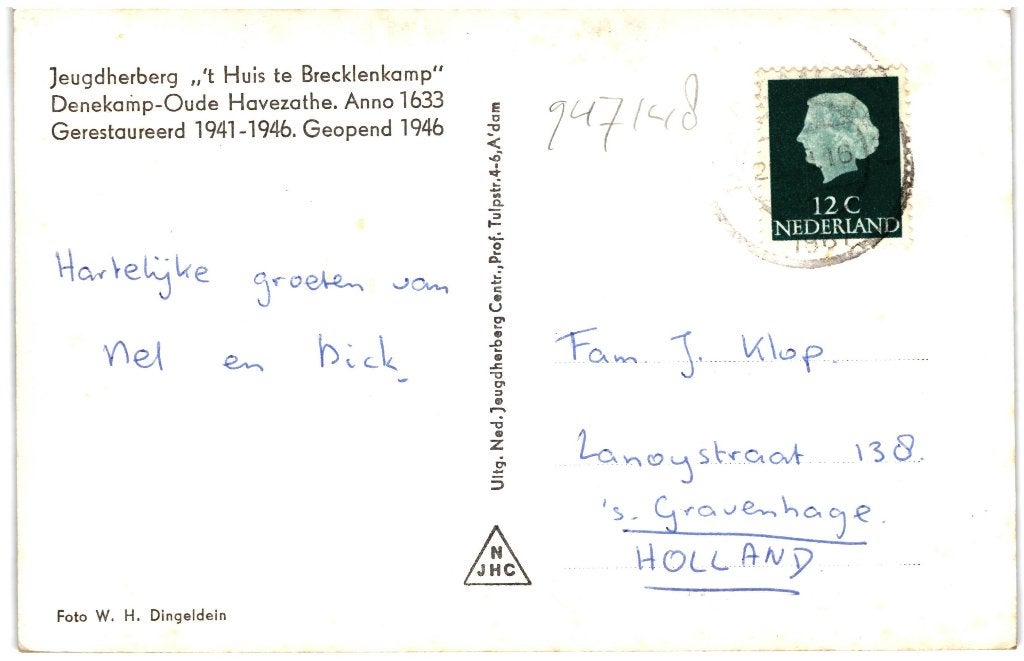 Jeugdherberg „'t Huis te Brecklenkamp"
Denekamp-Oude Havezathe. Anno 1633
Gerestaureerd 1941-1946. Geopend 1946
Hartelijke groeten van
Nel en Dick.
Foto W. H. Dingeldein
Uitg. Ned. Jeugdherberg Centr., Prof. Tulpstr. 4-6, A'dam
N
JHC
947/48
16
12 C
NEDERLAND
1961
Fam. J. Klop.
Lanoystraat 138.
's-Gravenhage.
HOLLAND